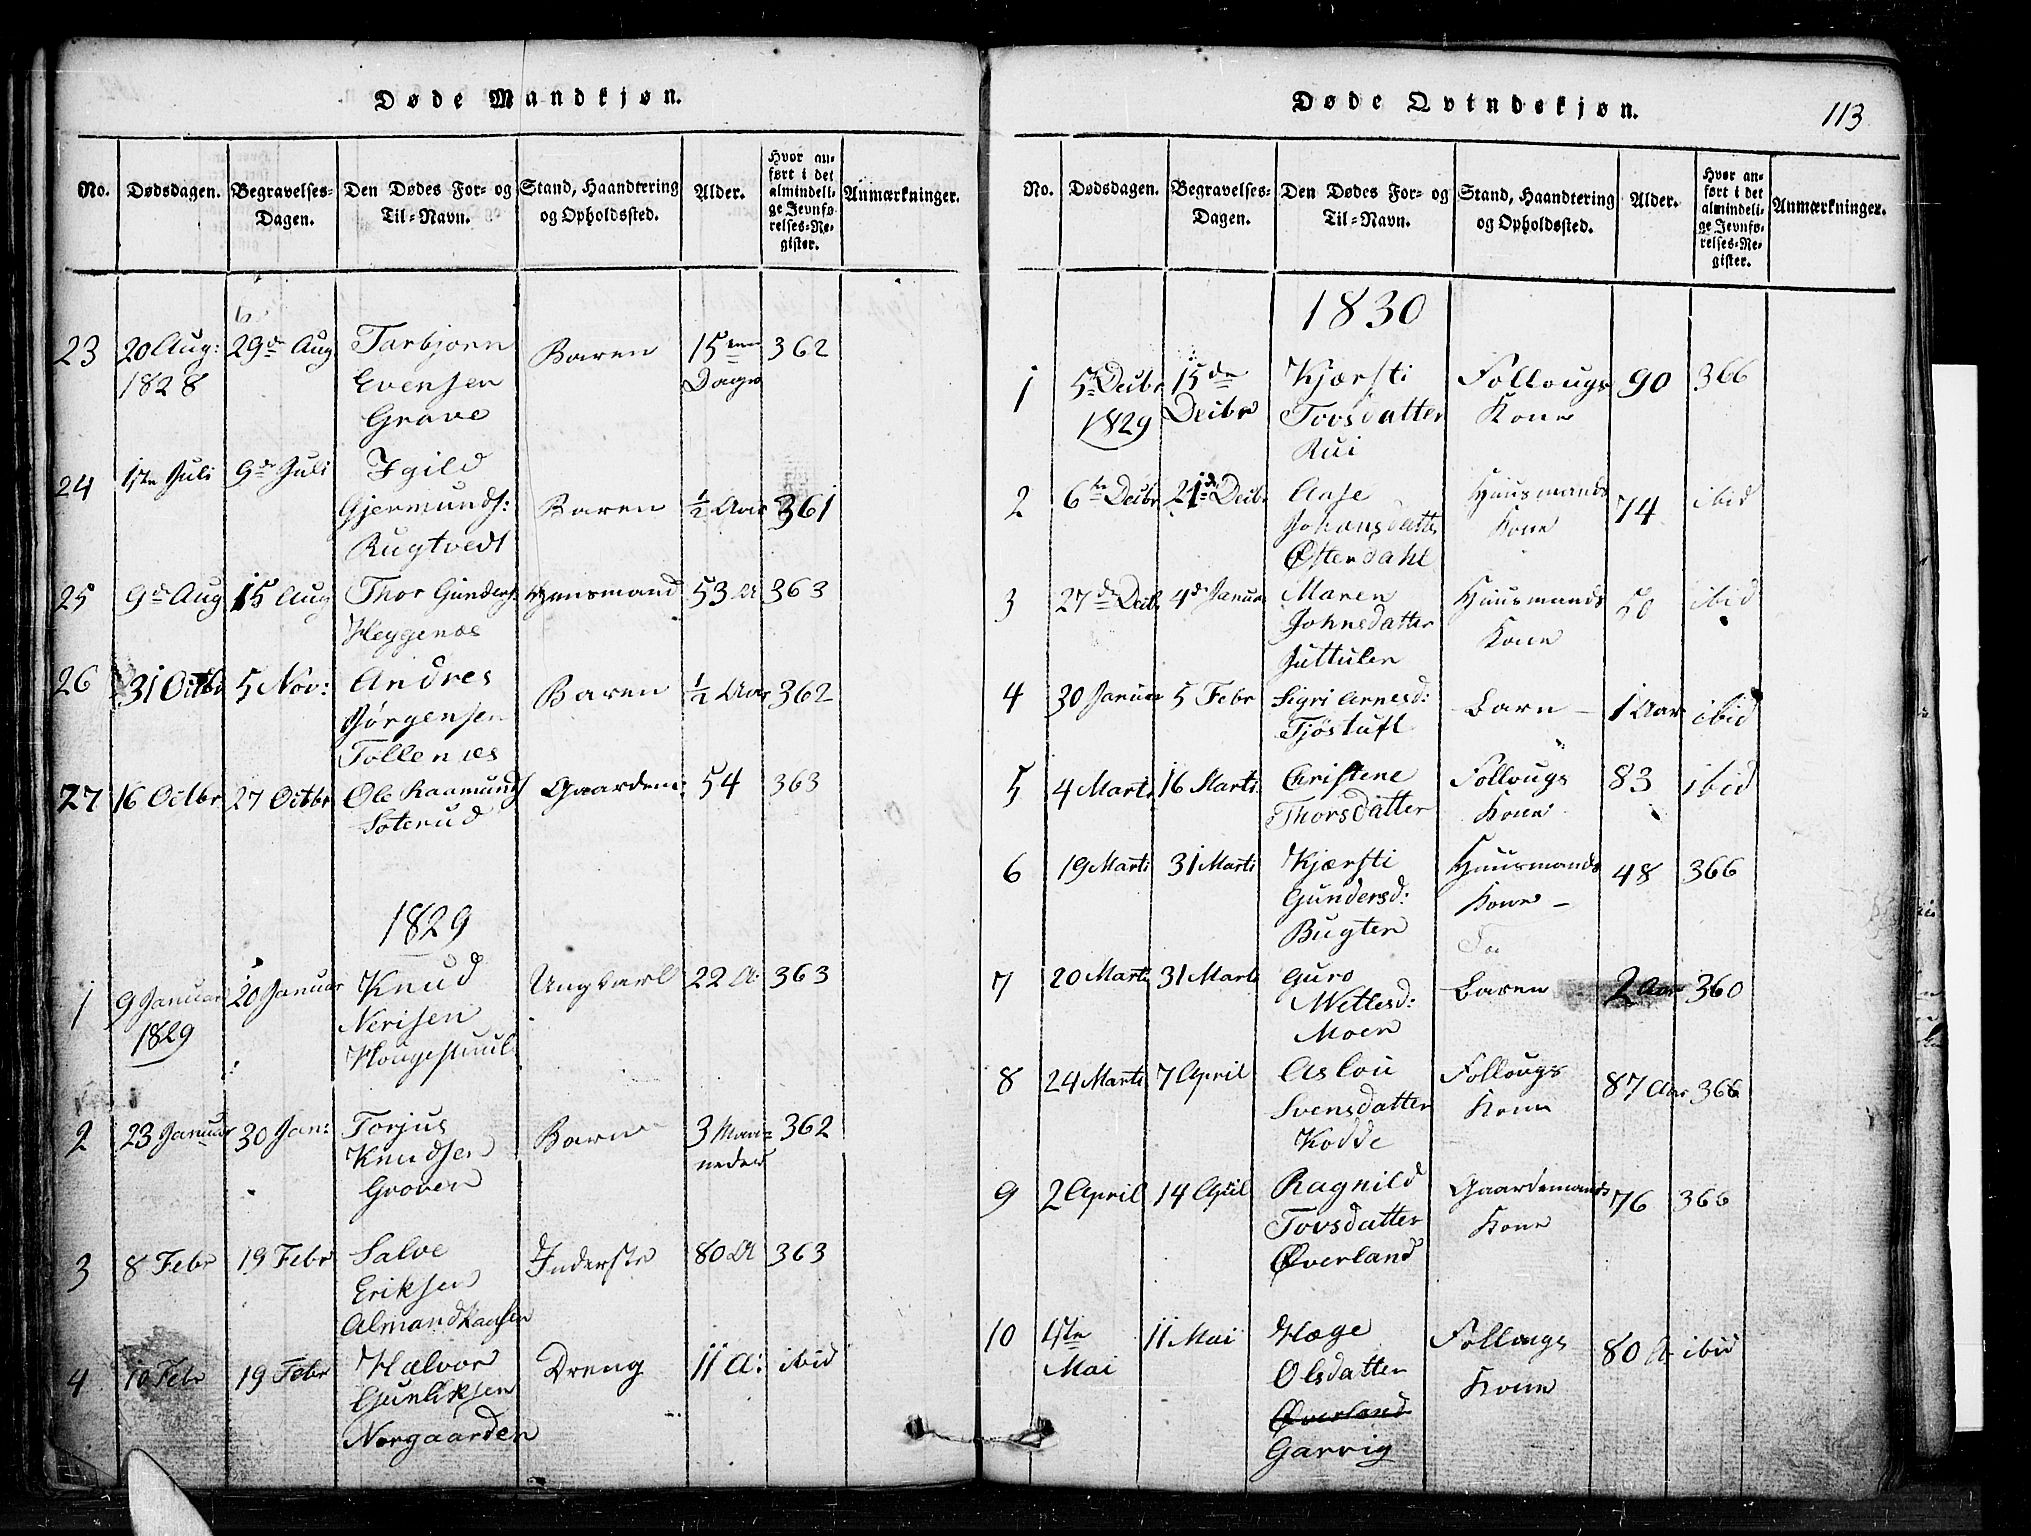 Døde Mandkjøn.
No. Dødsdagen. Begravelses-Dagen. Den Dødes For- og Til-Navn. Stand, Haandtering og Opholdssted. Alder. Hvor anført i det almindelige Jevnførelses-Register. Anmærkninger.
23 20 Aug: 29de Aug Tarbjorn Baren 15ten 362
1828 Evensen Dage
Grave
24 1ste Juli 9de Juli Igild
Gjermunds: Baren ½ Aar 361
Rugtvedt
25 9de Aug 15 Aug Thor Gunders: Huusmand 53 A 363
Heggenæs
26 31 Octbr 5 Nov: Andres Baren ½ Aar 362
Jørgensen
Tollenæs
27 16 Octbr 27 Octbr Ole Raamunds Gaardm: 54 363
Soterud
1829
1 9 Januar 20 Januar Knud Ungkarl 22 A: 363
1829 Nerisen
Hougestuul
2 23 Januar 30 Jan: Torjus Barn 3 Maa- 362
Knudsen neder
Groven
3 8 Febr 19 Febr Salve Inderste 80 A 363
Eriksen
4 10 Febr 19 Febr Halvor Dreng 11 A: ibid
Gunliksen
Norgaarden
Døde Qvindekjøn.
113
No. Dødsdagen. Begravelses-Dagen. Den Dødes For- og Til-Navn. Stand, Haandtering og Opholdssted. Alder. Hvor anført i det almindelige Jevnførelses-Register. Anmærkninger.
1830
1 5te Decbr 15de Kjærsti Follougs 90 366
1829 Decbr Tovsdatter Kone
Rui
2 6te Decbr 21de Decbr Aase Huusmands 74 ibid
Johansdatter Kone
Østerdahl
3 27de Decbr 4de Januar Maren Huusmands 50 ibid
Johnsdatter Kone
Juttulen
4 30 Januar 5 Febr Sigri Arnesd: Barn - 1 Aar ibid
Tjøstufl
5 4 Marti 16 Marti Cristene Follougs 83 ibid
Thorsdatter Kone
6 19 Marti 31 Marti Kjærsti Huusmands 48 366
Gundersd: Kone -
Bugten
7 20 Marti 31 Marti Guro Baren 2 Aar 360
Wetlesd:
Moen
8 24 Marti 7 April Aslou Follougs 87 Aar 366
Svensdatter Kone
Kodde
9 2 April 14 April Ragnild Gaardemands 76 366
Tovsdatter Kone
Øverland
10 4de 11 Mai Hæge Follougs 80 A ibid
Mai Olsdatter Kone
Øverland
Garvig